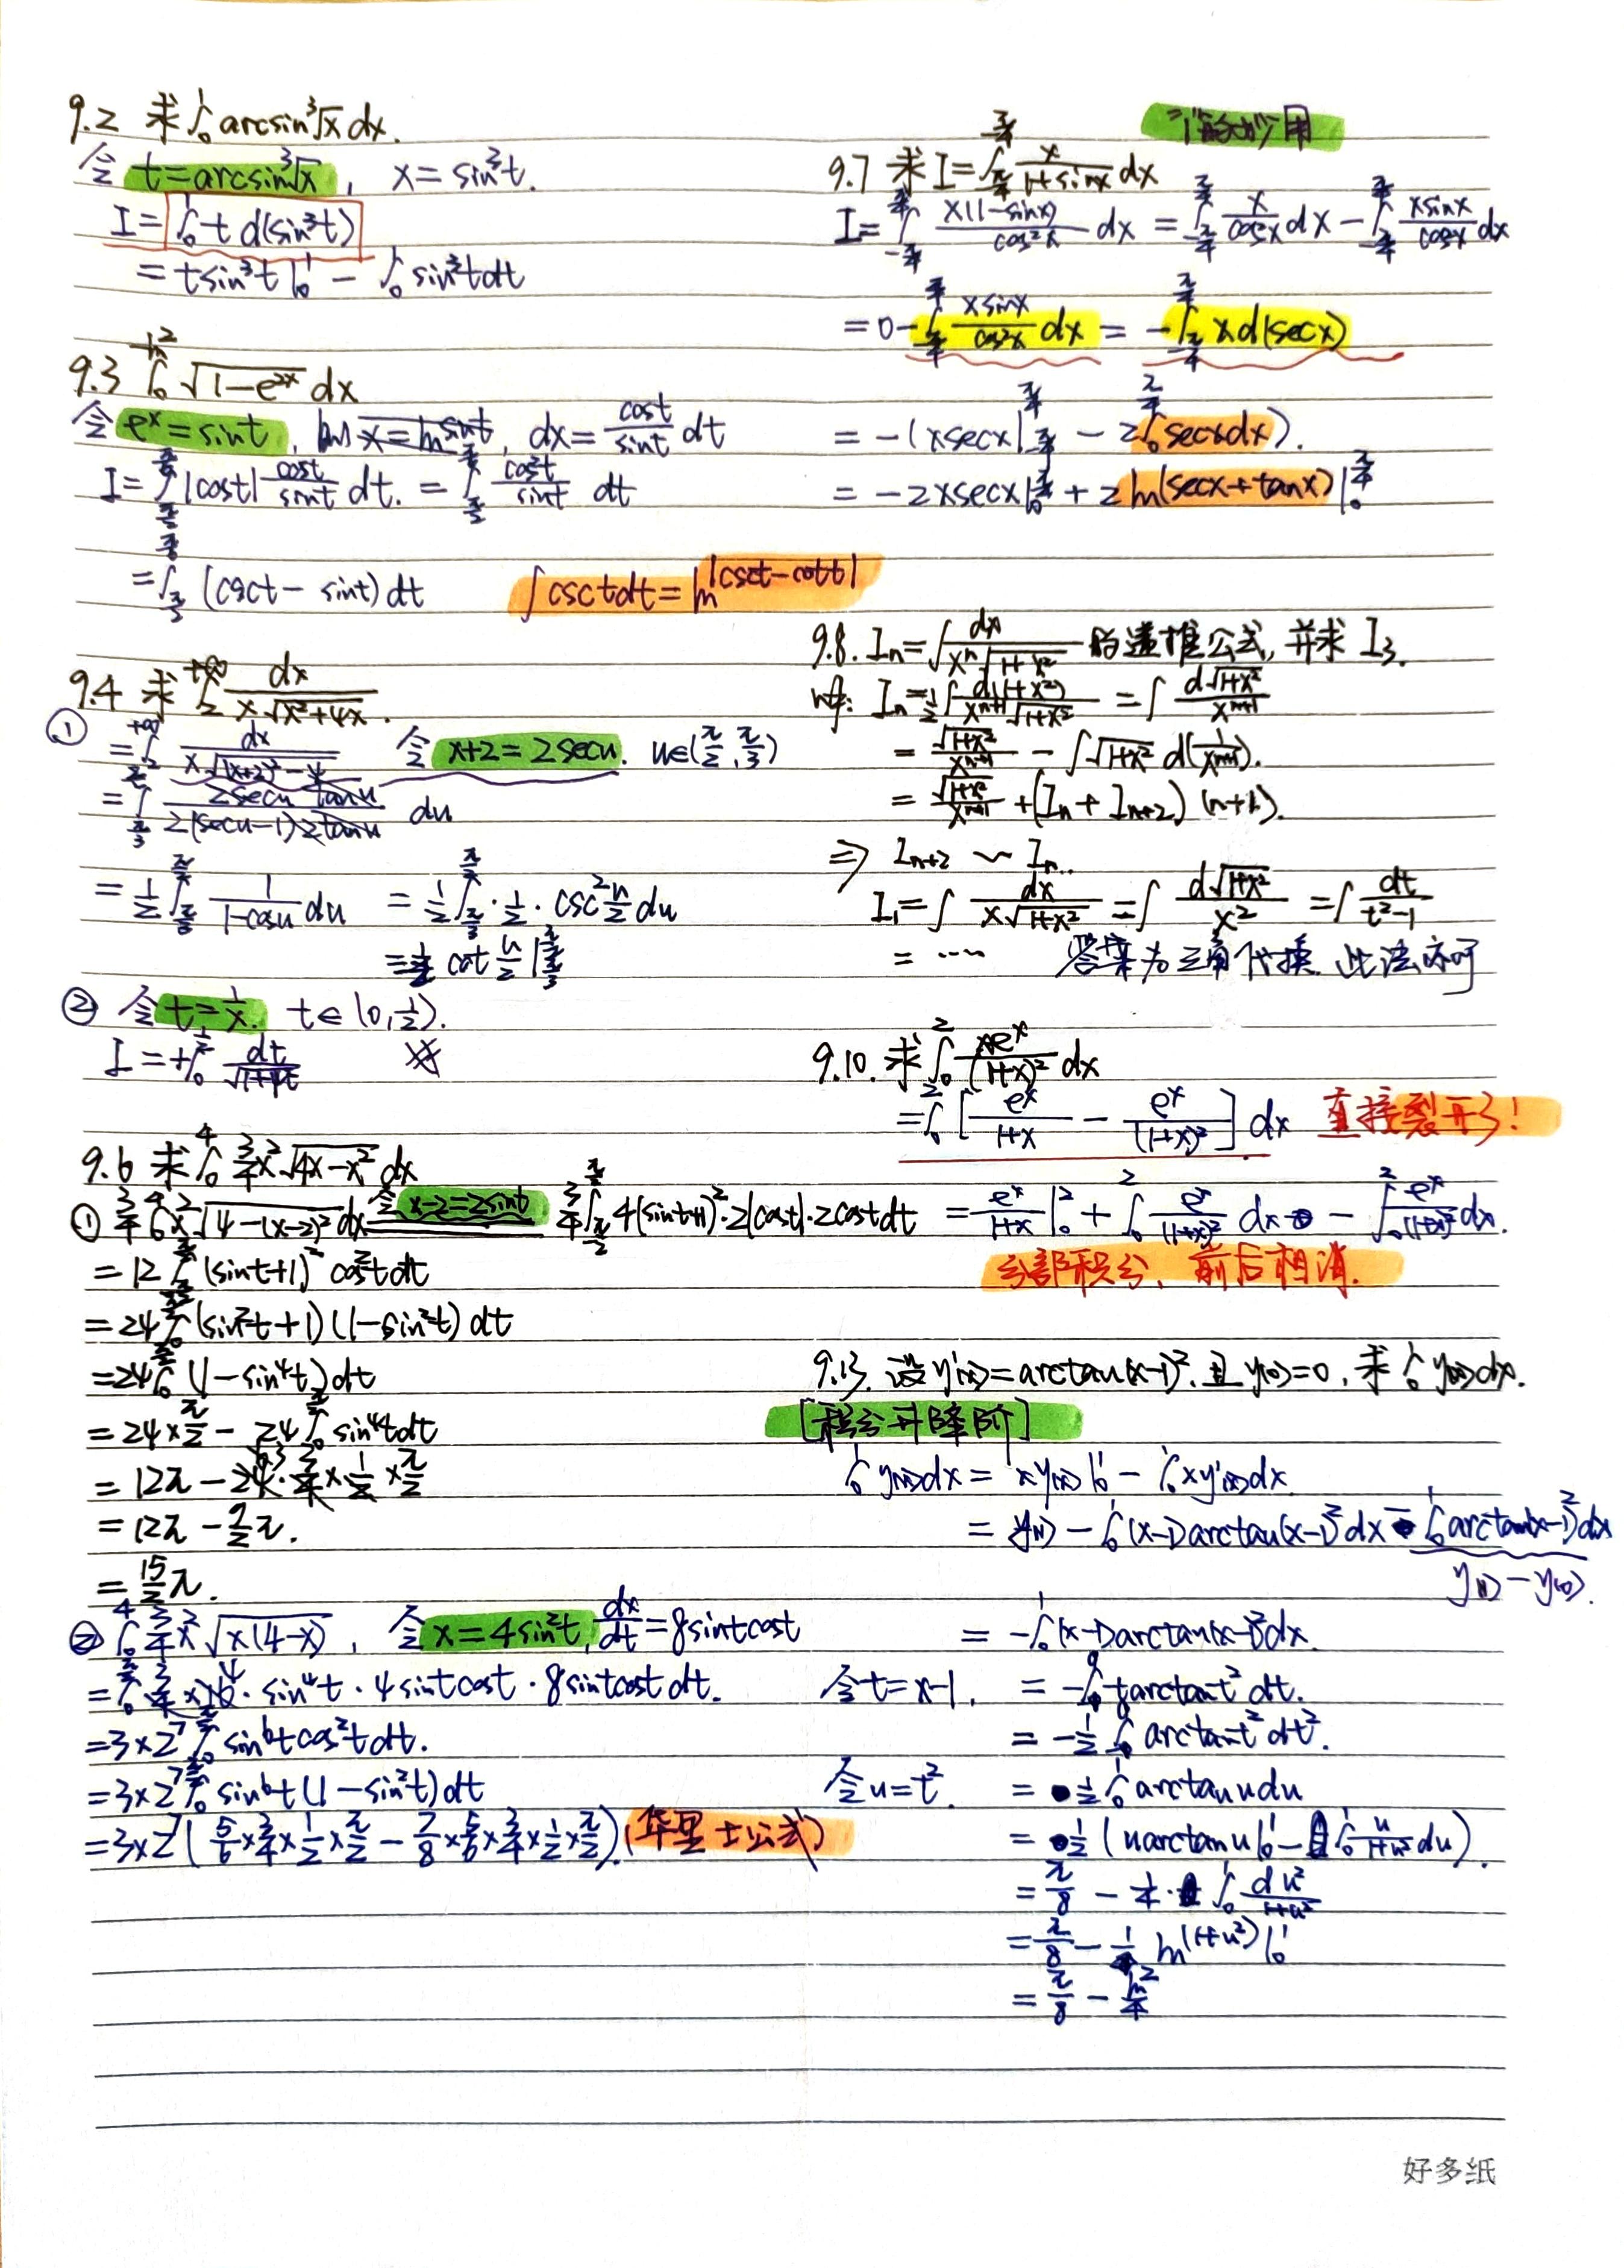 9.2 求∫₀¹ arcsin³√x dx.
令 t=arcsin³√x, x=sin³t.
I=∫₀¹ t d(sin³t)
=tsin³t|₀¹ - ∫₀¹ sin³tdt
9.3 ∫₀^(-ln2) √(1-e^(2x)) dx
令 e^x=sint, dx=cost/sint dt
I=∫_(π/2)^(π/6) |cost| cost/sint dt. = ∫_(π/2)^(π/6) cos²t/sint dt
=∫_(π/2)^(π/6) (csct - sint)dt ∫csctdt=ln|csct-cott|
9.4 求∫₂^(+∞) dx/(x√(x²+4x)).
① =∫₂^(+∞) dx/(x√((x+2)²-4)) 令 x+2=2secu. u∈(π/2,π/3)
=∫_(π/3)^(π/2) 2secu tanu/(2(secu-1)2tanu) du
=1/2∫_(π/3)^(π/2) 1/(1-cosu) du =1/2∫_(π/3)^(π/2)·1/2·csc²u/2 du
cot u/2 |
② 令 t=1/x. t∈(0,1/2).
I=+∫₀^(1/2) dt/√(1+4t)
9.6 求∫₀⁴ 3/4x²√(4x-x²) dx
① 3/4∫₀⁴x²√(4-(x-2)²)dx 令 x-2=2sint 3/4∫_(-π/2)^(π/2) 4(sint+1)²·2|cost|·2costdt
=12∫_(-π/2)^(π/2)(sint+1)²cos²tdt
=24∫₀^(π/2)(sin²t+1)(1-sin²t)dt
=24∫₀^(π/2)(1-sin⁴t)dt
=24×π/2 - 24∫₀^(π/2) sin⁴tdt
=12π-24·3/4×1/2×π/2
=12π-9/2π.
=15/2π.
② ∫₀⁴ 3/4x²√(x(4-x)), 令 x=4sin²t, dx/dt=8sintcost
=∫₀^(π/2) 3/4×16·sin⁴t·4sintcost·8sintcostdt.
=3×2⁷∫₀^(π/2) sin⁶tcos²tdt.
=3×2⁷∫₀^(π/2) sin⁶t(1-sin²t)dt
=3×2⁷(5/6×3/4×1/2×π/2-7/8×5/6×3/4×1/2×π/2).(华里士公式)
妙用
9.7 求I=∫_(-π/4)^(π/4) x/(1+sinx) dx
I=∫_(-π/4)^(π/4) x(1-sinx)/cos²x dx =∫_(-π/4)^(π/4) x/cos²x dx-∫_(-π/4)^(π/4) xsinx/cos²x dx
=0-∫_(-π/4)^(π/4) xsinx/cos²x dx = -∫_(-π/4)^(π/4) xd(secx)
=-(xsecx|_(-π/4)^(π/4) - 2∫₀^(π/4) secxdx).
=-2xsecx|₀^(π/4) + 2ln(secx+tanx)|₀^(π/4)
9.8. Iₙ=∫dx/(xⁿ√(1+x²)) 的递推公式,并求 I₃.
Iₙ=1/2∫d(1+x²)/(xⁿ⁺¹√(1+x²)) =∫d√(1+x²)/xⁿ⁺¹
=√(1+x²)/xⁿ⁺¹ - ∫√(1+x²) d(1/xⁿ⁺¹).
=√(1+x²)/xⁿ⁺¹ +(Iₙ+Iₙ₊₂)(n+1).
⇒ Iₙ₊₂ ~ Iₙ.
I₁=∫dx/(x√(1+x²)) =∫d√(1+x²)/x² =∫dt/(t²-1)
= …… 答案为三角代换 此法亦可
9.10. 求∫₀² xe^x/(1+x)² dx
=∫₀²[e^x/(1+x) - e^x/(1+x)²]dx 直接裂开!
=e^x/(1+x)|₀² + ∫₀² e^x/(1+x)² dx - ∫₀² e^x/(1+x)² dx.
分部积分,前后相消.
9.13. 设y'(x)=arctan(x-1)²,且y(0)=0,求∫₀¹y(x)dx.
[积分升降阶]
∫₀¹y(x)dx=xy(x)|₀¹-∫₀¹xy'(x)dx
=y(1)-∫₀¹(x-1)arctan(x-1)²dx-∫₀¹arctan(x-1)²dx
y(1)-y(0).
=-∫₀¹(x-1)arctan(x-1)²dx.
令t=x-1, =-∫₋₁⁰tarctant²dt.
=-1/2∫₋₁⁰arctant²dt².
令u=t². =1/2∫₀¹arctanudu
=1/2(uarctanu|₀¹-∫₀¹u/(1+u²)du).
=π/8-1/4·∫₀¹du²/(1+u²)
=π/8-1/4ln(1+u²)|₀¹
=π/8-ln2/4
好多纸